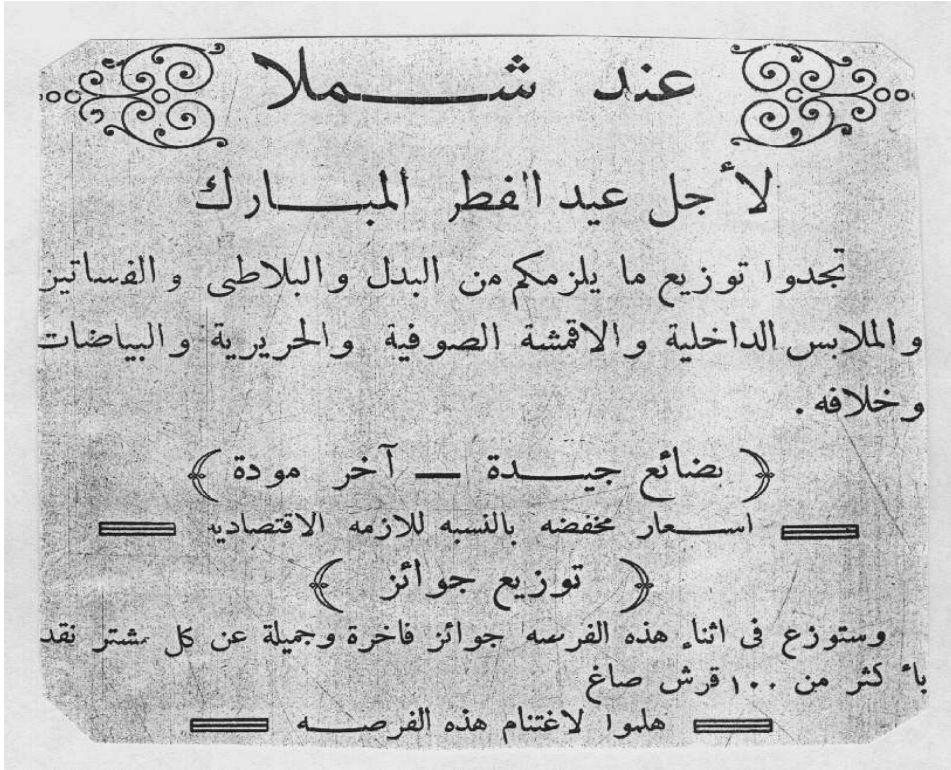 عند شملا
لأجل عيد الفطر المبارك
تجدوا توزيع ما يلزمكم من البدل والبلاطى والفساتين
والملابس الداخلية والاقمشة الصوفية والحريرية والبياضات
وخلافه .
( بضائع جيدة — آخر مودة )
اسعار مخفضه بالنسبه للازمه الاقتصاديه
( توزيع جوائز )
وستوزع فى اثناء هذه الفرصه جوائز فاخرة وجميلة عن كل مشتر نقد
بأكثر من ١٠٠ قرش صاغ
هلموا لاغتنام هذه الفرصه